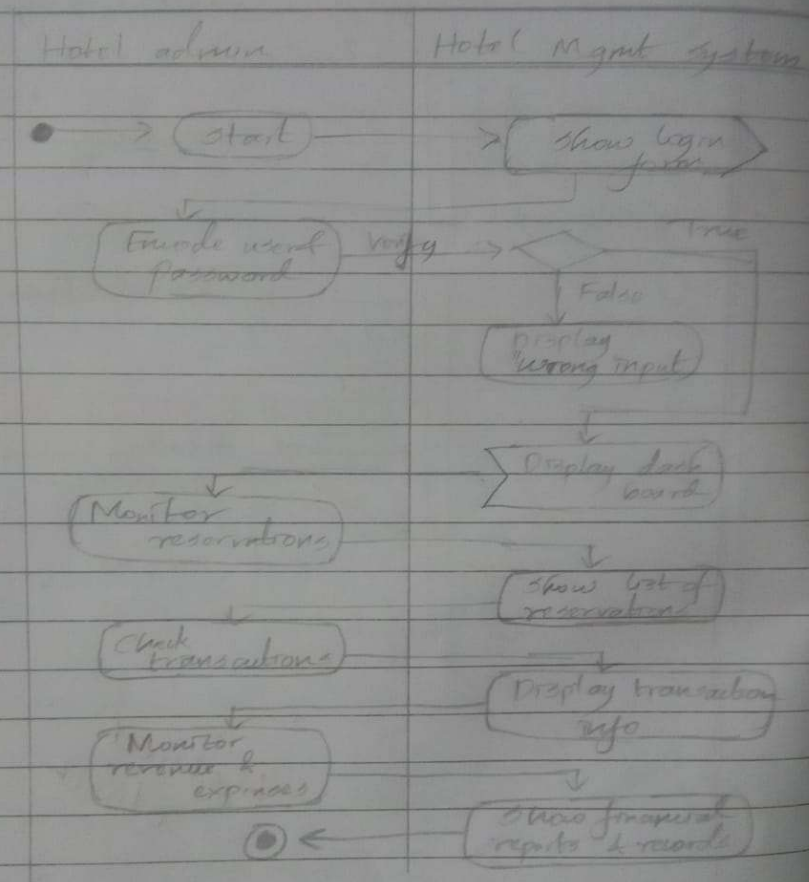 Hotel admin
Hotel Mgmt system
Start
Show login
form
Encode user &
password
Verify
True
False
Display
"wrong input
Display dash
board
Monitor
reservations
Show list of
reservations
Check
transactions
Display transaction
info
Monitor
revenue &
expenses
Show financial
reports & records